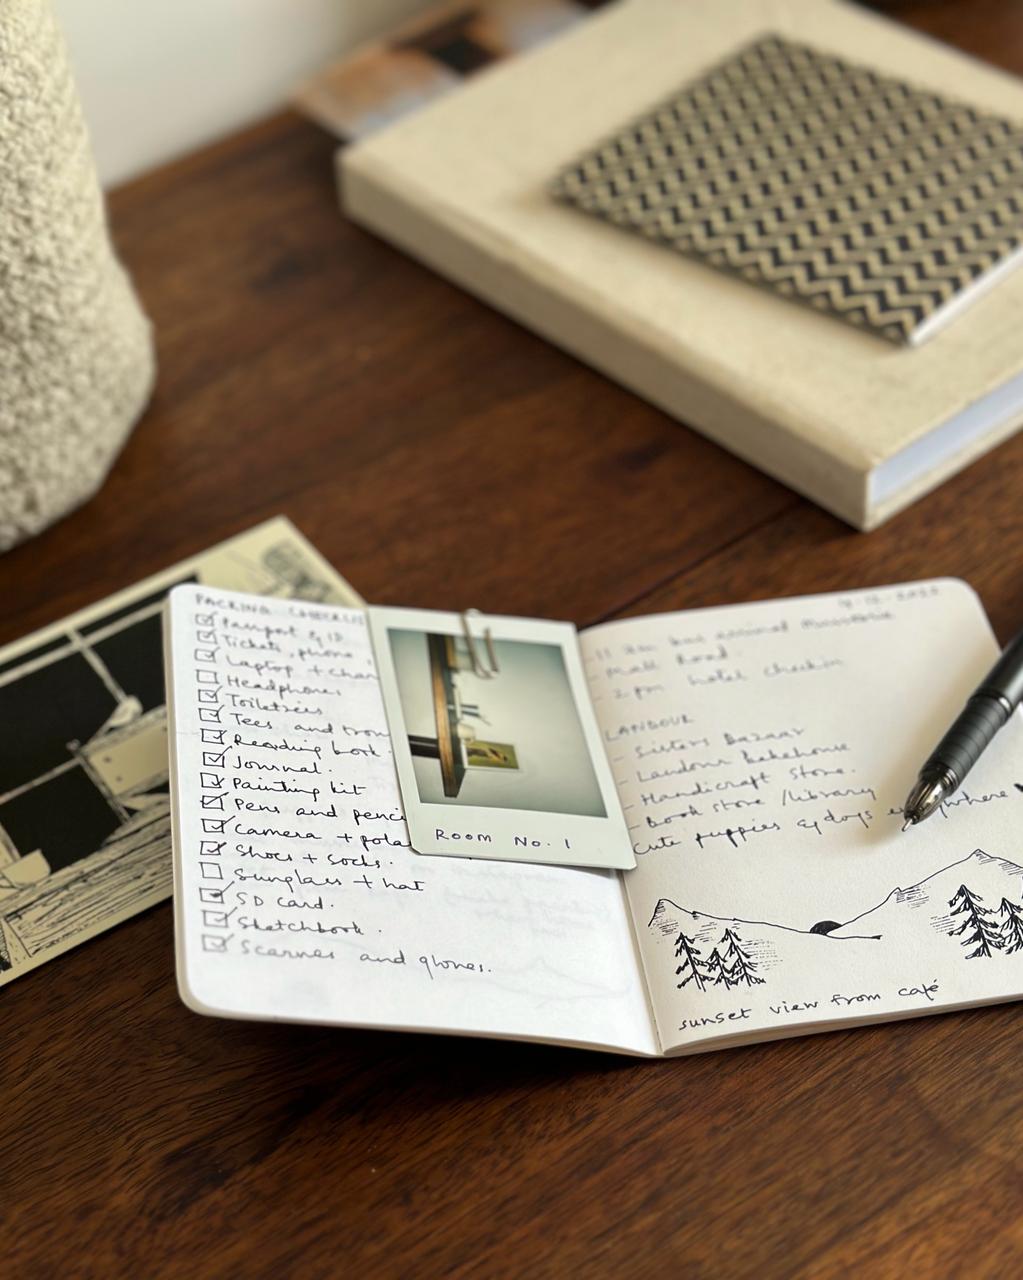 PACKING CHECKLIS
Passport & ID
Tickets, phone,
Laptop + char
Headphones
Toiletries
Tees and trou
Reading book.
Journal.
Painting kit
Pens and penci
Camera + pola
Shoes + socks.
Sunglass + hat
SD card.
Sketchbook.
Scarves and gloves.
Room No. 1
- 11 am bus arrival Mussoorie
- Mall Road.
- 2 pm hotel checkin
LANDOUR
- Sisters Bazaar
- Landour Bakehouse
- Handicraft store.
- Book store / library
Cute puppies & dogs everywhere
sunset view from café